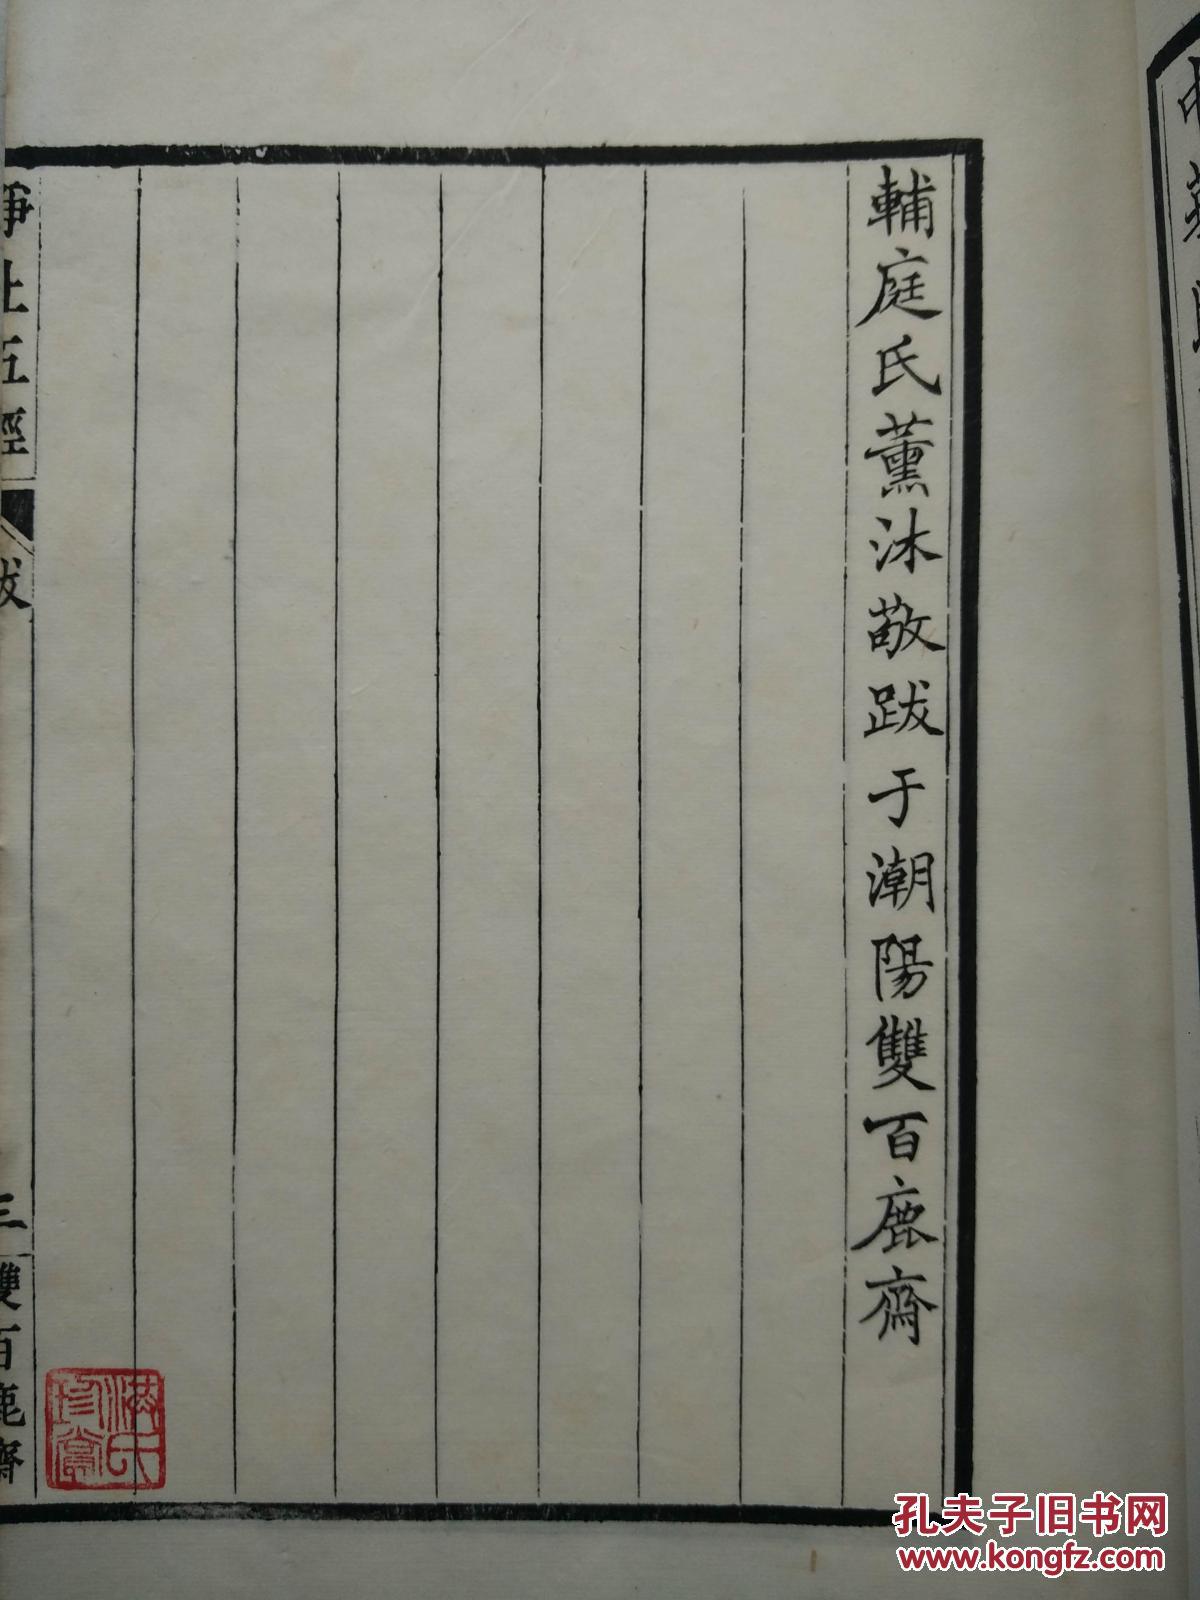 輔庭氏薰沐敬跋于潮陽雙百鹿齋
淨土五經
跋
三
雙百鹿齋
洪氏
珍賞
孔夫子旧书网
www.kongfz.com